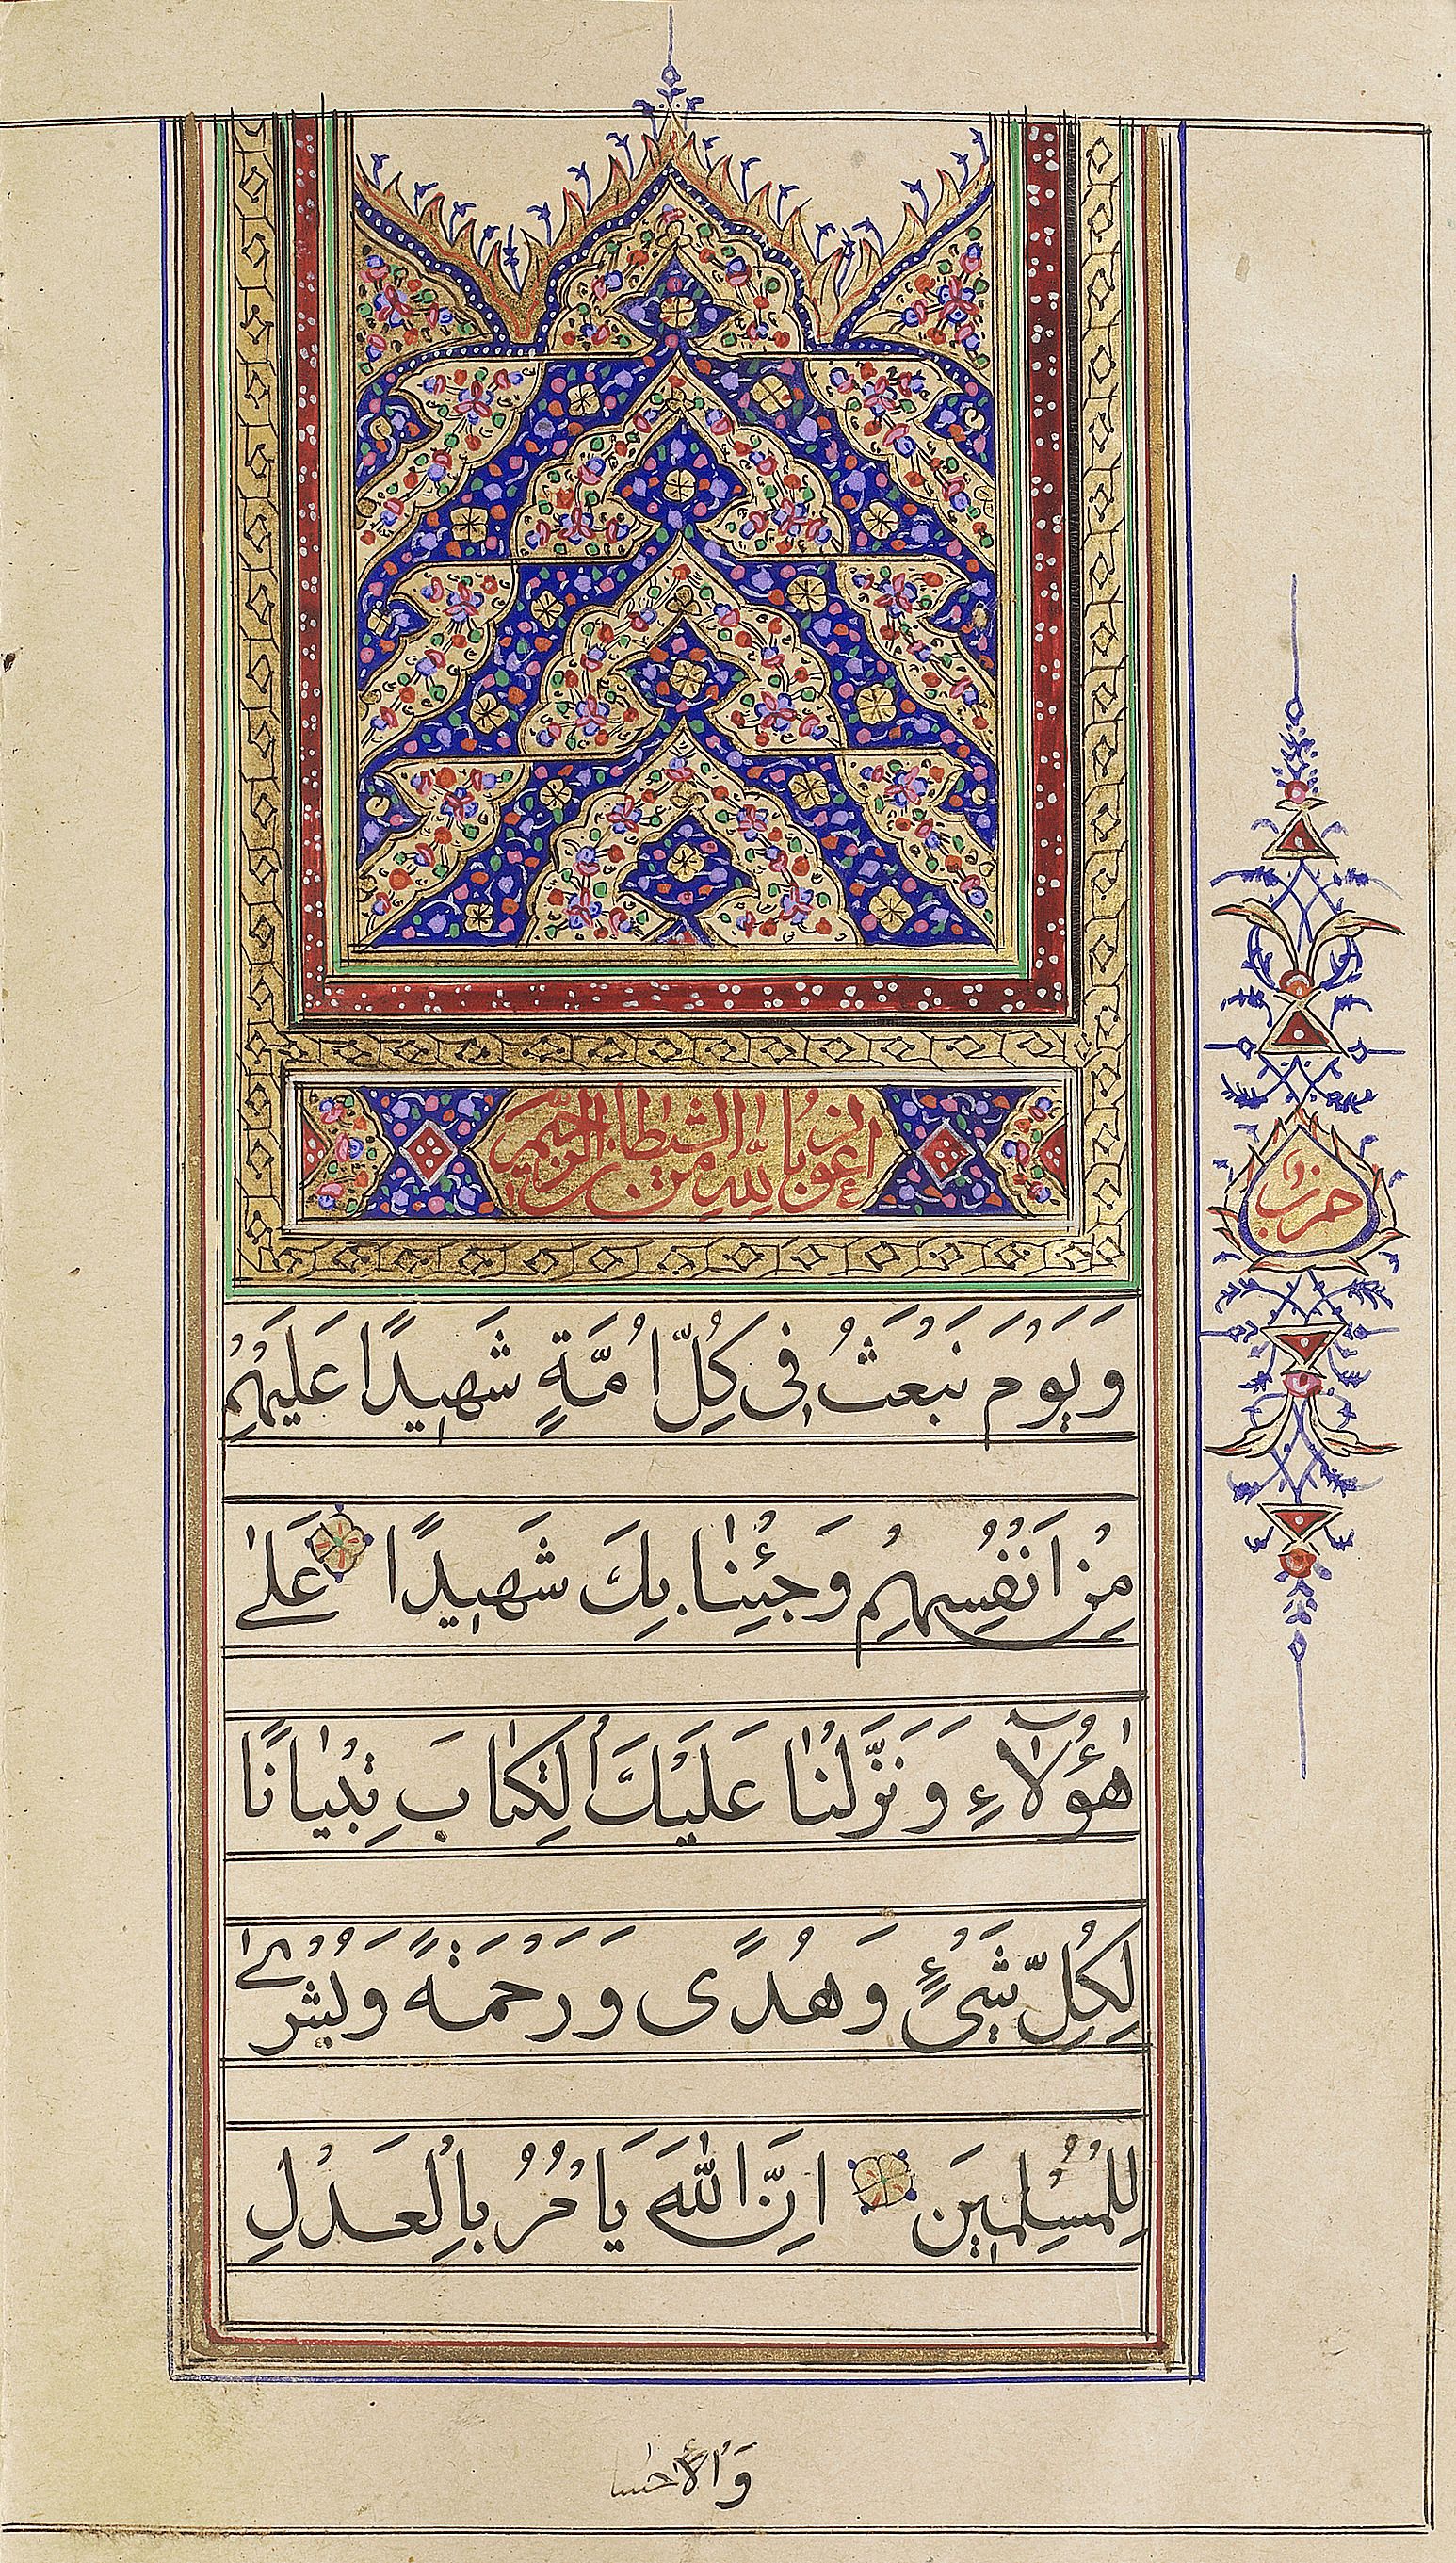 اعوذ بالله من الشیطان الرجیم
حزب
وَيَوْمَ نَبْعَثُ فِى كُلِّ اُمَّةٍ شَهِيدًا عَلَيْهِمْ
مِنْ اَنْفُسِهِمْ وَجِئْنٰا بِكَ شَهِيدًا عَلىٰ
هٰؤُلٰآءِ وَنَزَّلْنٰا عَلَيْكَ الْكِتٰابَ تِبْيٰانًا
لِكُلِّ شَيْءٍ وَهُدًى وَرَحْمَةً وَبُشْرىٰ
لِلْمُسْلِمِينَ اِنَّ اللّٰهَ يَاْمُرُ بِالْعَدْلِ
وَالْاِحْسٰا